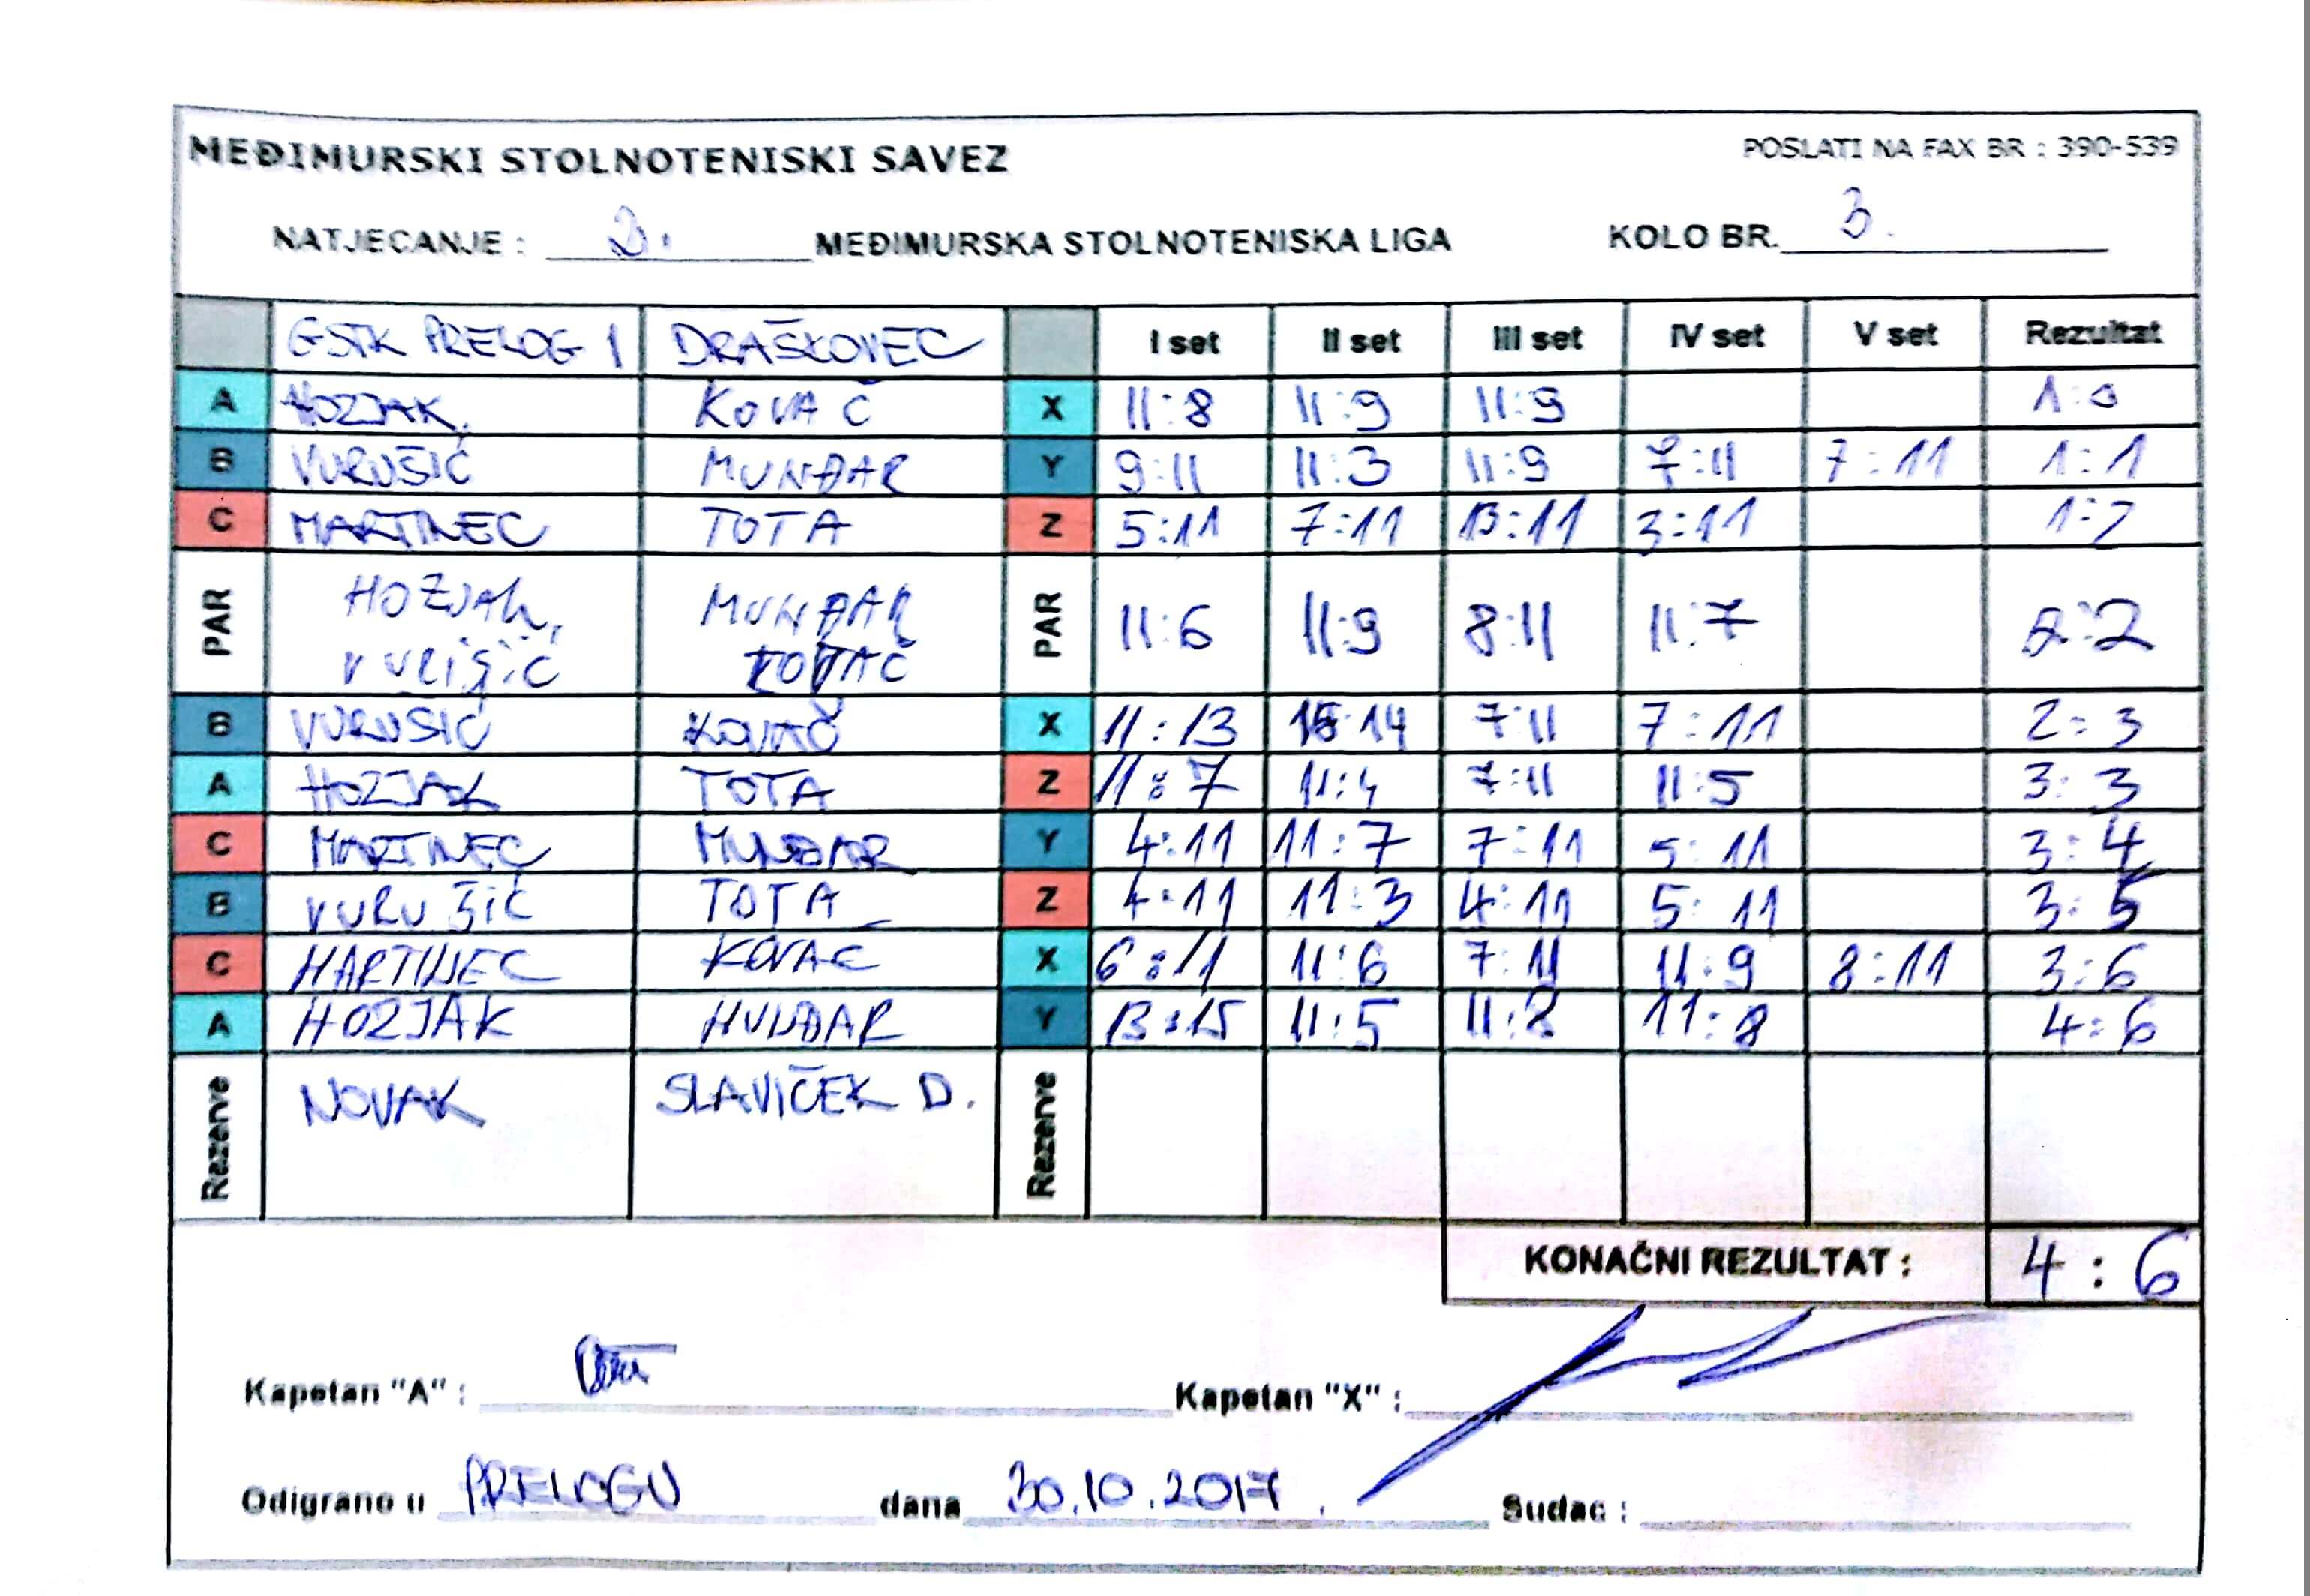 MEĐIMURSKI STOLNOTENISKI SAVEZ POSLATI NA FAX BR : 390-539
NATJECANJE : 2. MEĐIMURSKA STOLNOTENISKA LIGA KOLO BR. 3.
GSTK PRELOG 1 DRAŠKOVEC I set II set III set IV set V set Rezultat
A HOZJAK KOVAČ X 11:8 11:9 11:9 1:0
B VURUŠIĆ MUNĐAR Y 9:11 11:3 11:9 7:11 7:11 1:1
C MARTINEC TOTA Z 5:11 7:11 13:11 3:11 1:2
PAR HOZJAK, MUNĐAR PAR 11:6 11:9 8:11 11:7 2:2
KOVAČ
B VURUSIĆ KOVAČ X 11:13 14 7:11 7:11 2:3
A HOZJAK TOTA Z 11:7 11:4 7:11 11:5 3:3
C MARTINEC MUNĐAR Y 4:11 11:7 7:11 5:11 3:4
B VURUŠIĆ TOTA Z 4:11 11:3 4:11 5:11 3:5
C MARTINEC KOVAC X 6:11 11:6 7:11 11:9 8:11 3:6
A HOZJAK MUNĐAR Y 13:15 11:5 11:8 11:8 4:6
Rezerve NOVAK SLAVIČEK D. Rezerve
KONAČNI REZULTAT : 4:6
Kapetan "A" : Kapetan "X" :
Odigrano u PRELOGU dana 30.10.2017. Sudac :